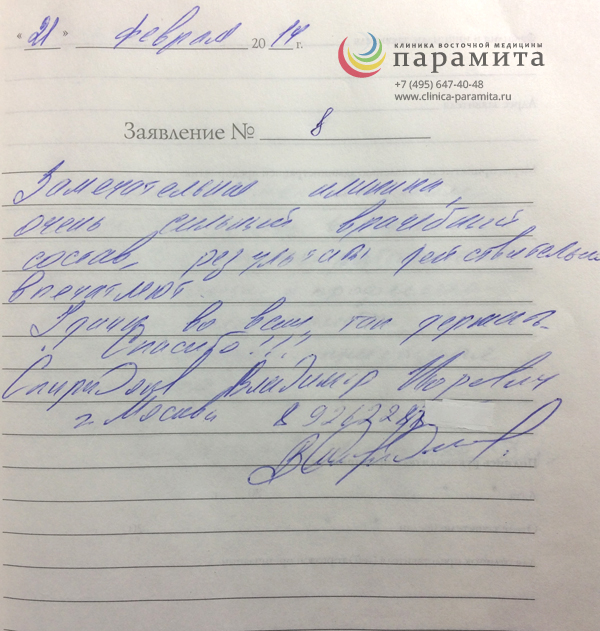 « 21 » февраля 2017 г.
КЛИНИКА ВОСТОЧНОЙ МЕДИЦИНЫ
ПАРАМИТА
+7 (495) 647-40-48
www.clinica-paramita.ru
Заявление № 8
Замечательная клиника,
очень сильный врачебный
состав, результаты действительно
впечатляют.
Удачи во всем, так держать.
Спасибо!!!
Спиридонов Владимир Игоревич
г. Москва 8 926228